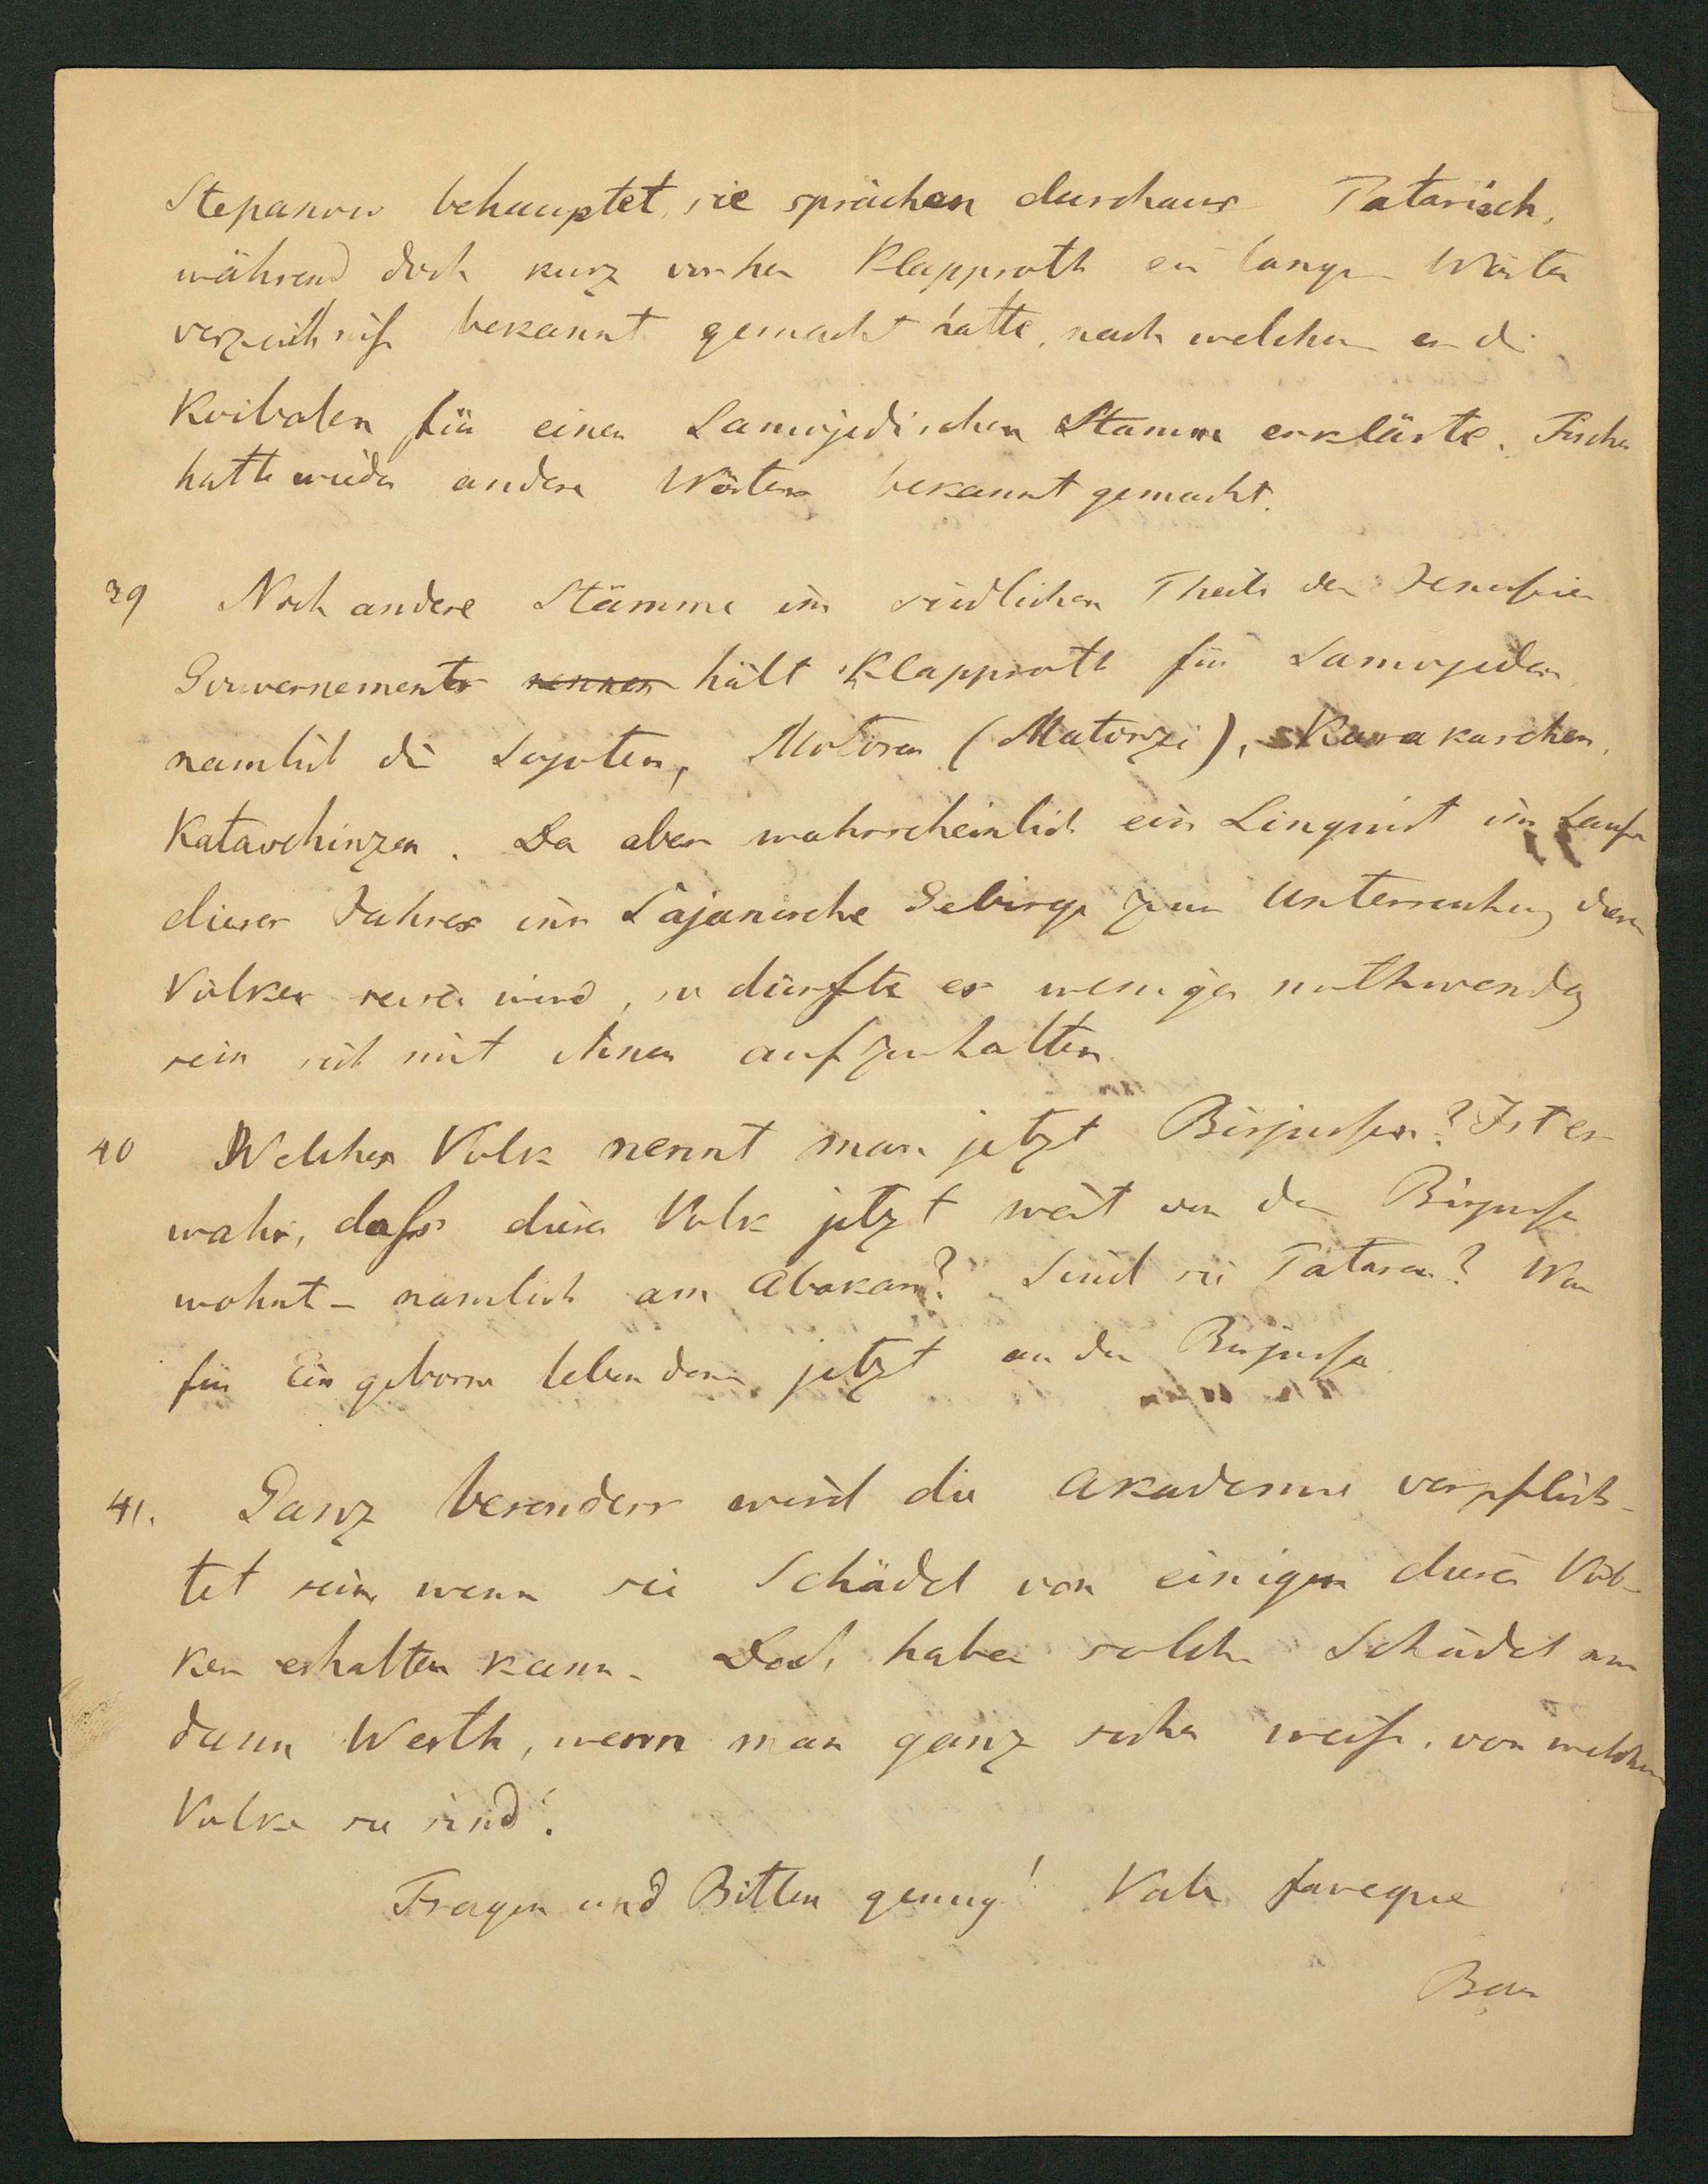 Stepanow behauptet, sie sprächen durchaus Tatarisch,
während doch kurz vorher Klapproth ein langes Wörter
verzeichniß bekannt gemacht hatte, nach welchem er die
Koibalen für einen Samojedischen Stamm erklärte. Fischer
hatte wieder andere Wörter bekannt gemacht.
39 Noch andere Stämme im südlichen Theile des Jenisseischen
Gouvernements nennen hält Klapproth für Samojeden,
namlich die Sojoten, Motoren (Matorzi), Karakaschen,
Katavchinzen. Da aber wahrscheinlich ein Linguist im Laufe
dieses Jahres ins Sajanische Gebirge zur Untersuchung dieser
Völker reisen wird, so dürfte es weniger nothwendig
sein sich mit ihnen aufzuhalten.
40 Welches Volk nennt man jetzt Birjussen? Ist es
wahr, dass dieses Volk jetzt weit von der Birjussa
wohnt – nämlich am Abakan? Sind sie Tataren? Was
für Eingeborne leben denn jetzt an der Birjussa
41. Ganz besonders wird die Akademie verpflich-
tet sein, wenn sie Schädel von einigen dieser Völ-
ker erhalten kann. Doch haben solche Schädel nur
dann Werth, wenn man ganz sicher weiß, von welchem
Volke sie sind.
Fragen und Bitten genug! Vale faveque
Baer